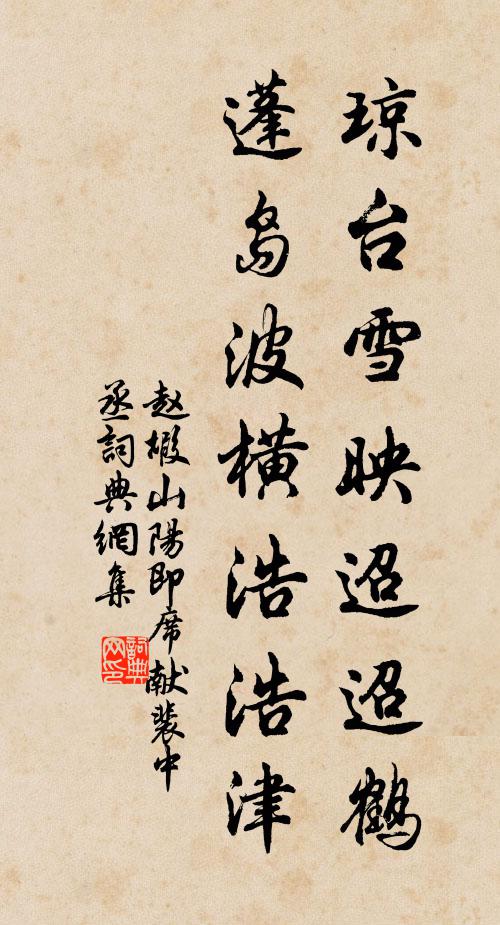 琼台雪映迢迢鹤
蓬岛波横浩浩津
赵嘏山陽即席献裴中
丞詞典網集
詞典网印